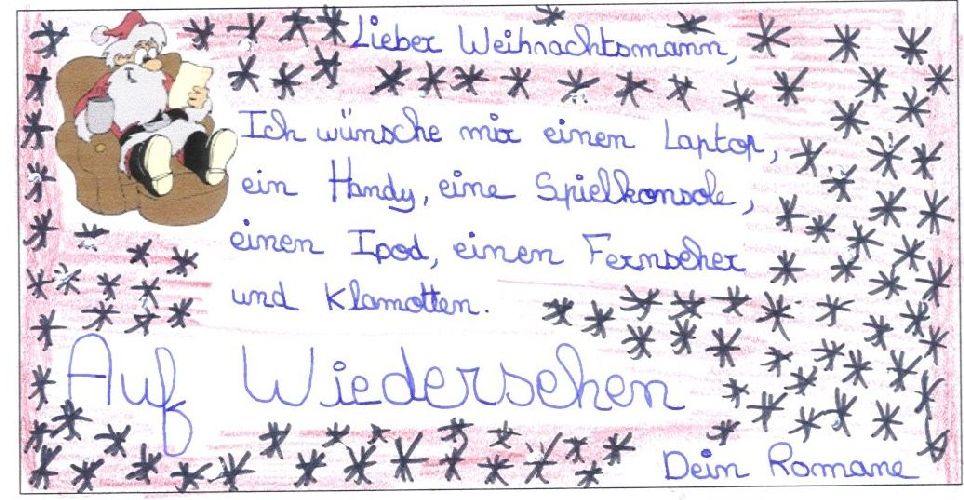 Lieber Weihnachtsmann,
Ich wünsche mir einen Laptop,
ein Handy, eine Spielkonsole,
einen Ipod, einen Fernseher
und Klamotten.
Auf Wiedersehen
Dein Romane